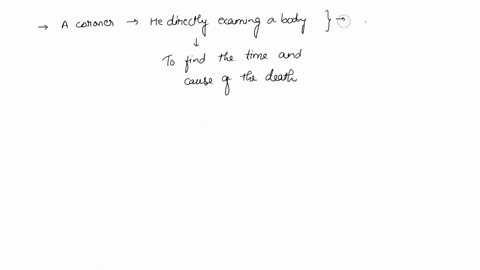 → A coroner → He directly examing a body } →
↓
To find the time and
cause of the death